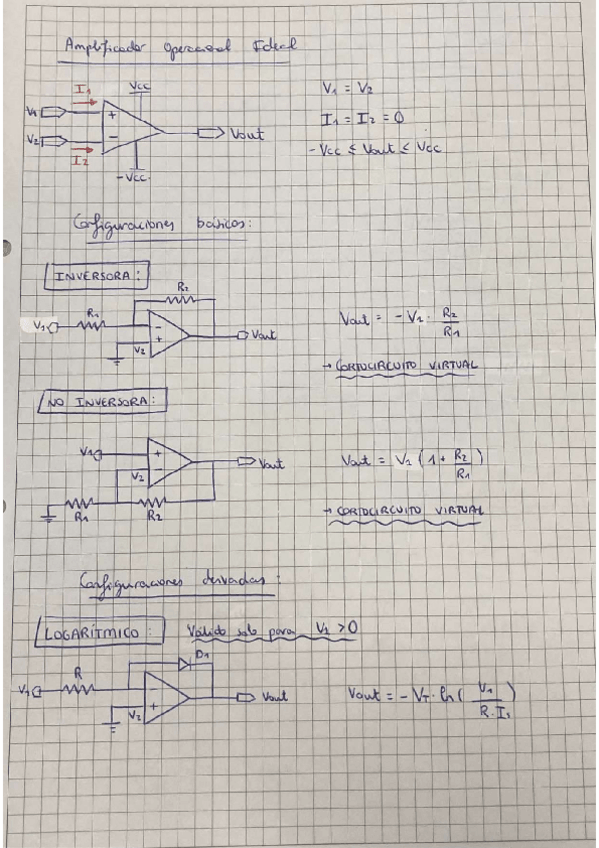 Amplificador Operacional Ideal
Vcc
I1
V1
+
V2
-
I2
-Vcc
Vout
V1 = V2
I1 = I2 = 0
-Vcc ≤ Vout ≤ Vcc
Configuraciones básicas:
INVERSORA:
R2
R1
V1
-
+
V2
Vout
Vout = - V1 · R2/R1
→ CORTOCIRCUITO VIRTUAL
NO INVERSORA:
V1
+
-
V2
Vout
R1
R2
Vout = V1 (1 + R2/R1)
→ CORTOCIRCUITO VIRTUAL
Configuraciones derivadas:
LOGARÍTMICO:
Válido solo para V1 > 0
D1
R
V1
-
+
V2
Vout
Vout = - VT · ln (V1/R·Is)